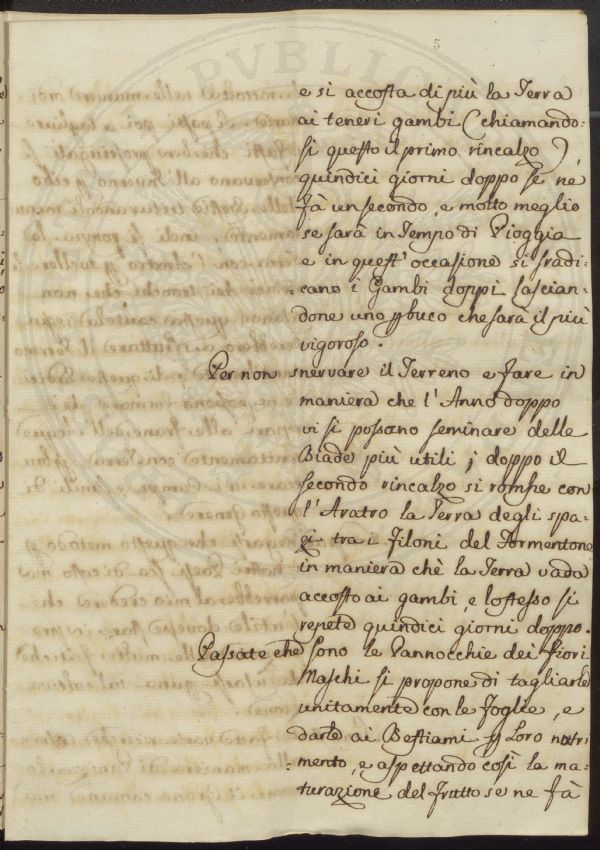 5
PVBLIC
e si accosta di più la Terra
ai teneri gambi (chiamando=
si questo il primo rincalzo)
quindici giorni doppo se ne
fà un secondo, e molto meglio
se sarà in Tempo di Pioggia
e in quest'occasione si sradi=
=cano i Gambi doppi lascian=
=done uno p buco che sarà il più
vigoroso.
Per non snervare il Terreno e fare in
maniera che l'Anno doppo
vi si possano seminare delle
Biade più utili; doppo il
secondo rincalzo si rompe con
l'Aratro la Terra degli spa=
zi tra i Filoni del Formentone
in maniera chè la Terra vada
accosto ai gambi, e lo stesso si
repete quindici giorni doppo.
Passate che sono le Pannocchie dei fiori
Maschi si propone di tagliarle
unitamente con le foglie, e
darle ai Bestiami p Loro nutri=
=mento, e aspettando così la ma=
=turazione del frutto se ne fà